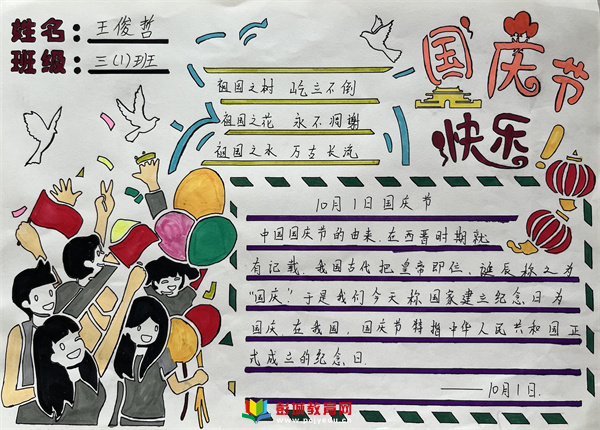 姓名：王俊哲
班级：三(1)班
国庆节
快乐！
祖国之树 屹立不倒
祖国之花 永不凋谢
祖国之水 万古长流
10月1日国庆节
中国国庆节的由来，在西晋时期就
有记载，我国古代把皇帝即位、诞辰称之为
“国庆”，于是我们今天称国家建立纪念日为
国庆，在我国，国庆节特指中华人民共和国正
式成立的纪念日.
——10月1日.
彭城教育网